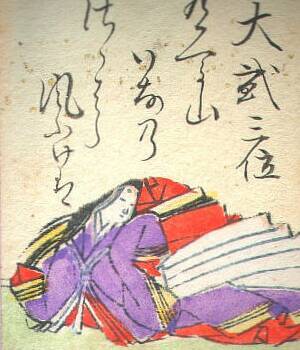 大貳三位
ありま山
いなの
さゝはら
風ふけは